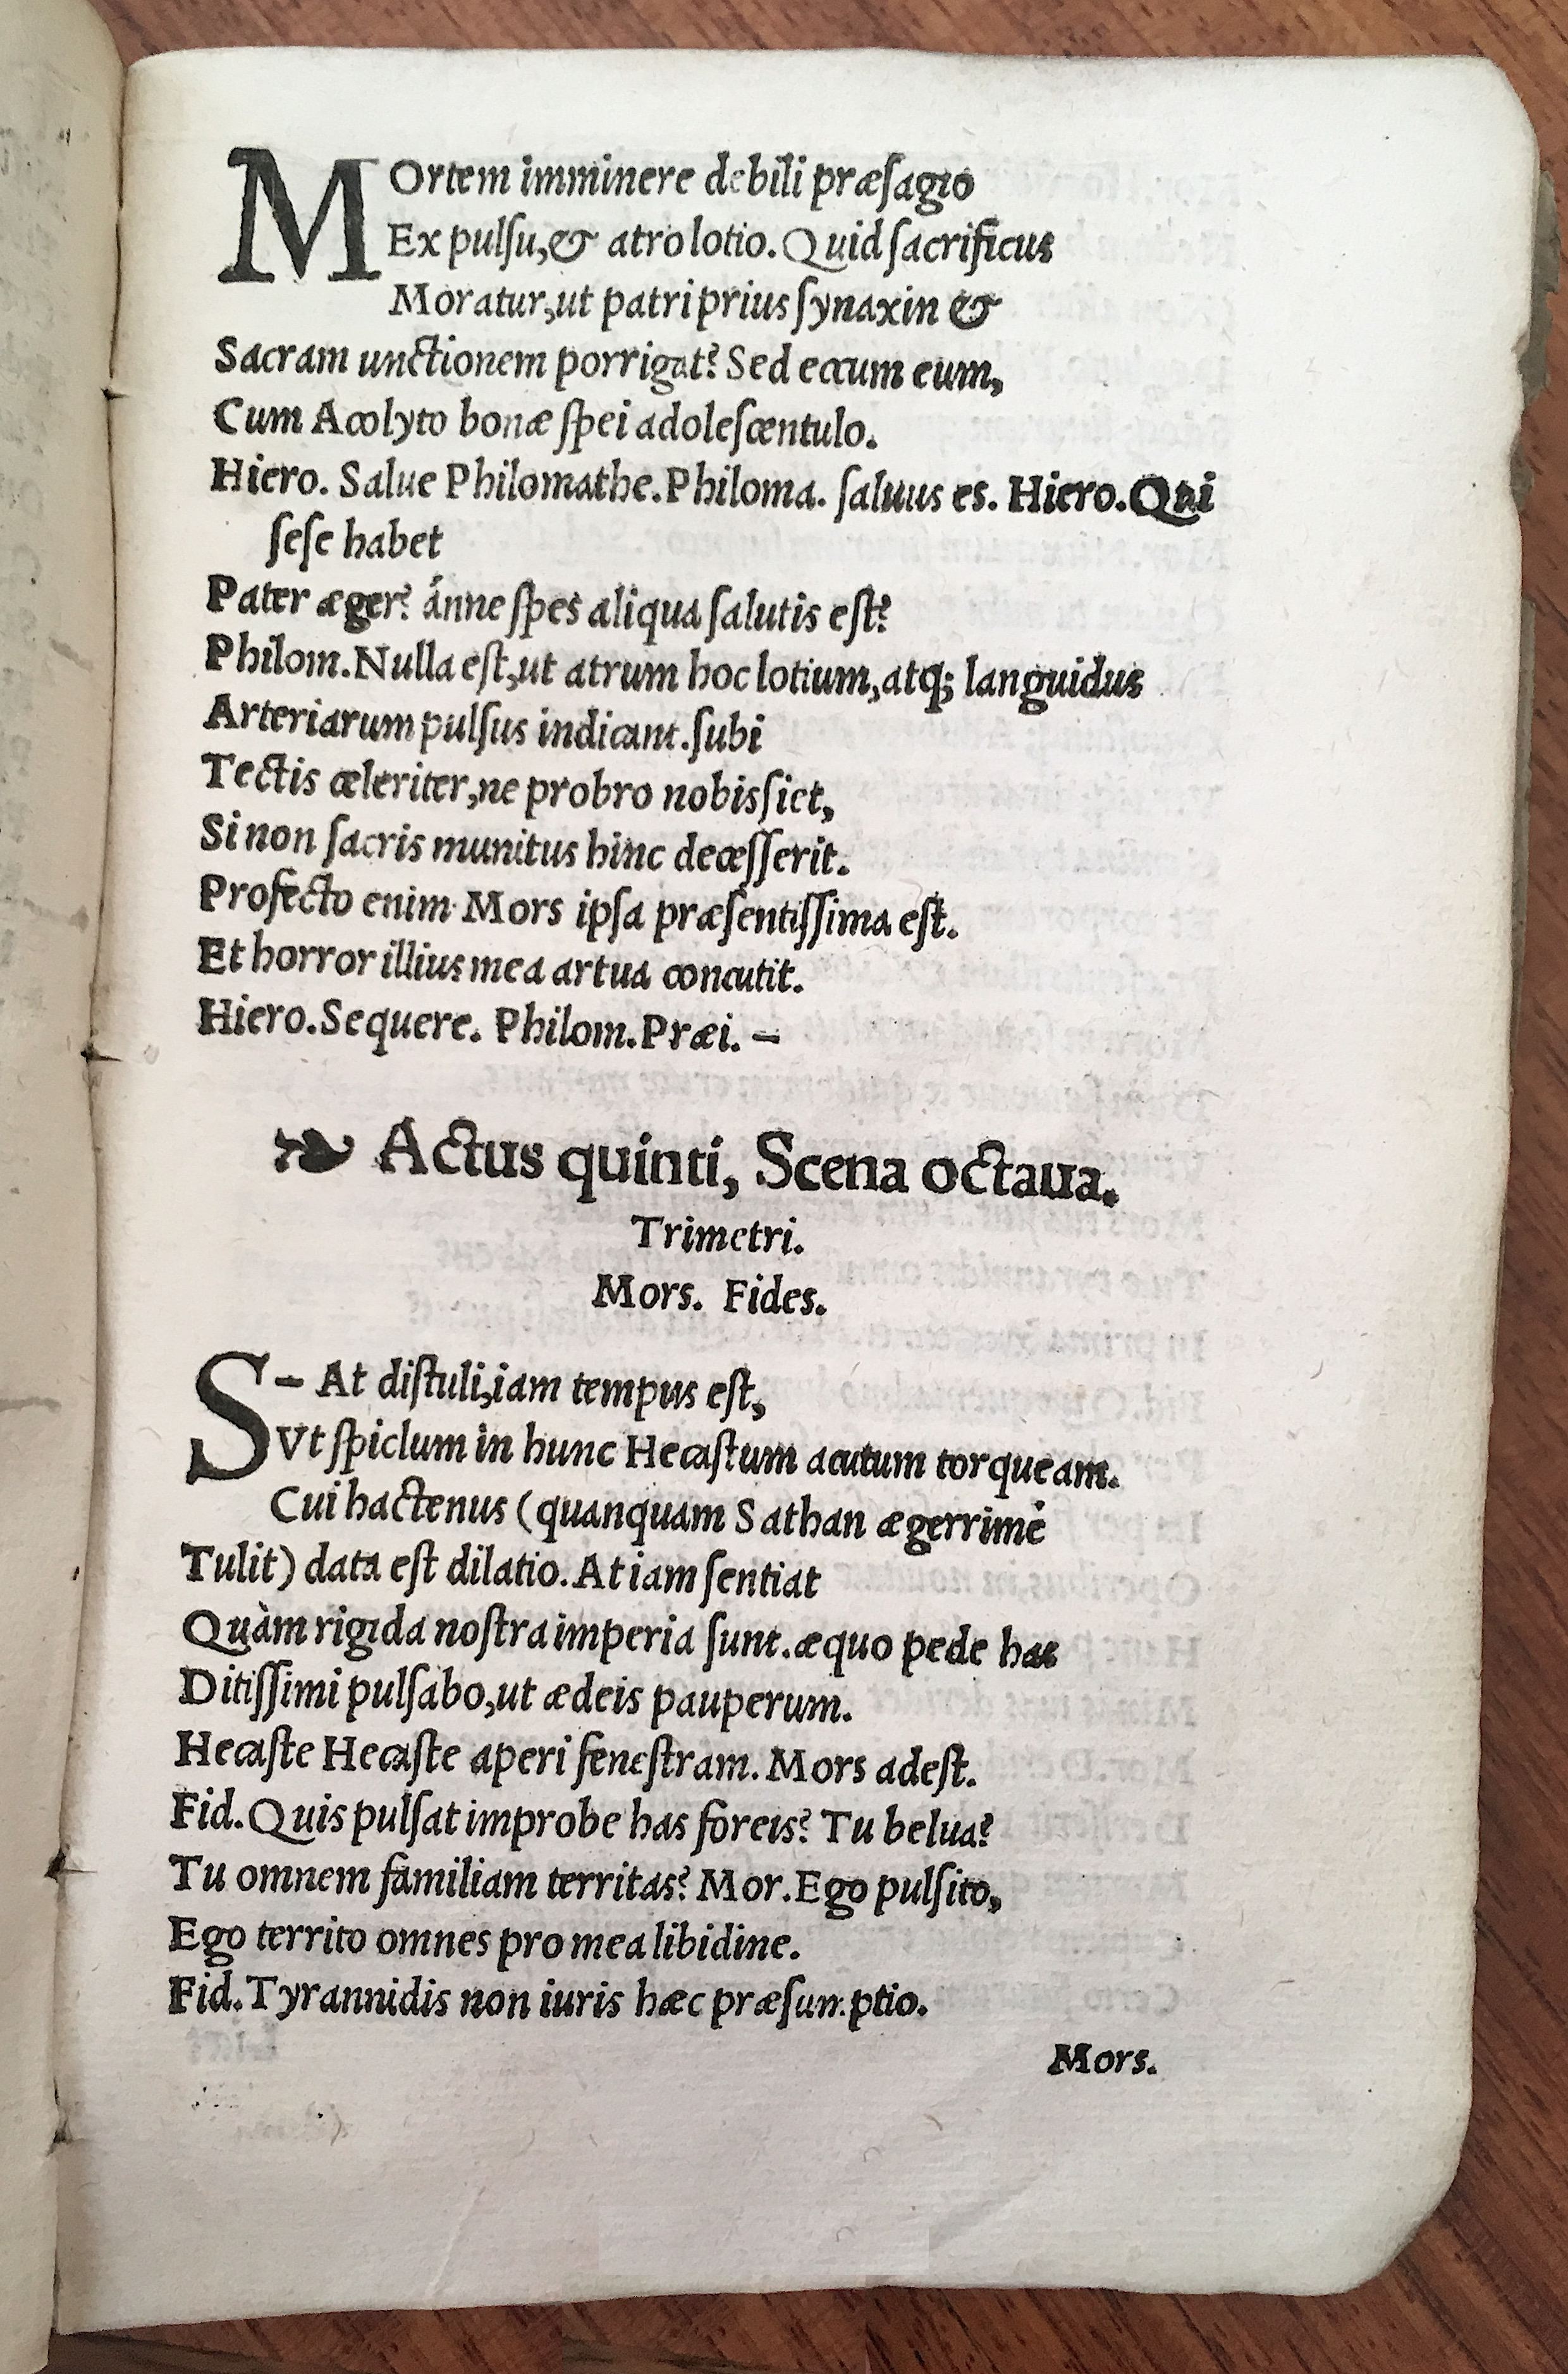 MOrtem imminere debili præſagio
Ex pulſu,& atro lotio. Quid ſacrificus
Moratur,ut patri prius ſynaxin &
Sacram unctionem porrigat? Sed eccum eum,
Cum Acolyto bonæ ſpei adoleſcentulo.
Hiero. Salue Philomathe. Philoma. ſaluus es. Hiero. Qui
ſeſe habet
Pater æger? ánne ſpes aliqua ſalutis eſt?
Philom. Nulla eſt,ut atrum hoc lotium,atq; languidus
Arteriarum pulſus indicant. ſubi
Tectis celeriter,ne probro nobis ſiet,
Si non ſacris munitus hinc deceſſerit.
Profecto enim Mors ipſa præſentiſſima eſt.
Et horror illius mea artua concutit.
Hiero. Sequere. Philom. Præi. –
❧ Actus quinti, Scena octaua.
Trimetri.
Mors. Fides.
S– At diſtuli,iam tempus eſt,
Vt ſpiclum in hunc Hecaſtum acutum torqueam.
Cui hactenus (quanquam Sathan ægerrimè
Tulit) data eſt dilatio. At iam ſentiat
Quàm rigida noſtra imperia ſunt. æquo pede has
Ditiſſimi pulſabo,ut ædeis pauperum.
Hecaſte Hecaſte aperi feneſtram. Mors adeſt.
Fid. Quis pulſat improbe has foreis? Tu belua?
Tu omnem familiam territas? Mor. Ego pulſito,
Ego territo omnes pro mea libidine.
Fid. Tyrannidis non iuris hæc præſumptio.
Mors.